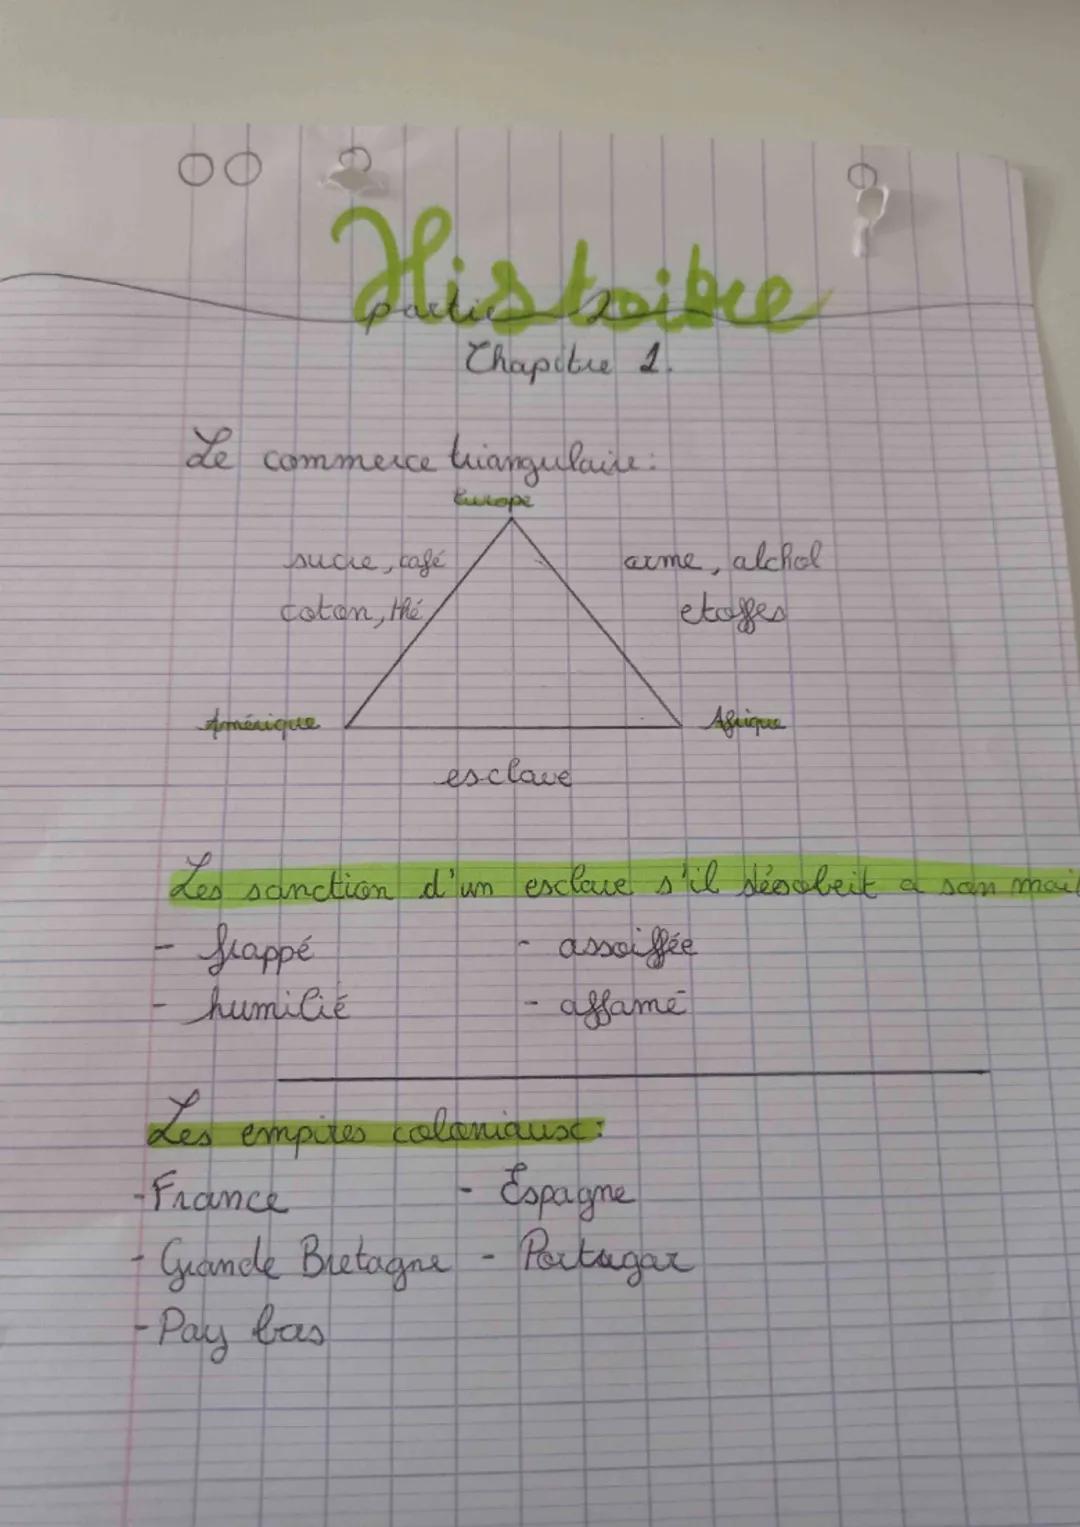 Histoire
partie 2
Chapitre 1.
Le commerce triangulaire:
Europe
sucre, café arme, alchol
coton, thé etoffes
Amérique Afrique
esclave
Les sanction d'un esclave s'il désobeit a son mai
- frappé - assoiffée
- humilié - affamé
Les empires coloniaux:
- France - Espagne
- Grande Bretagne - Portugar
- Pay bas